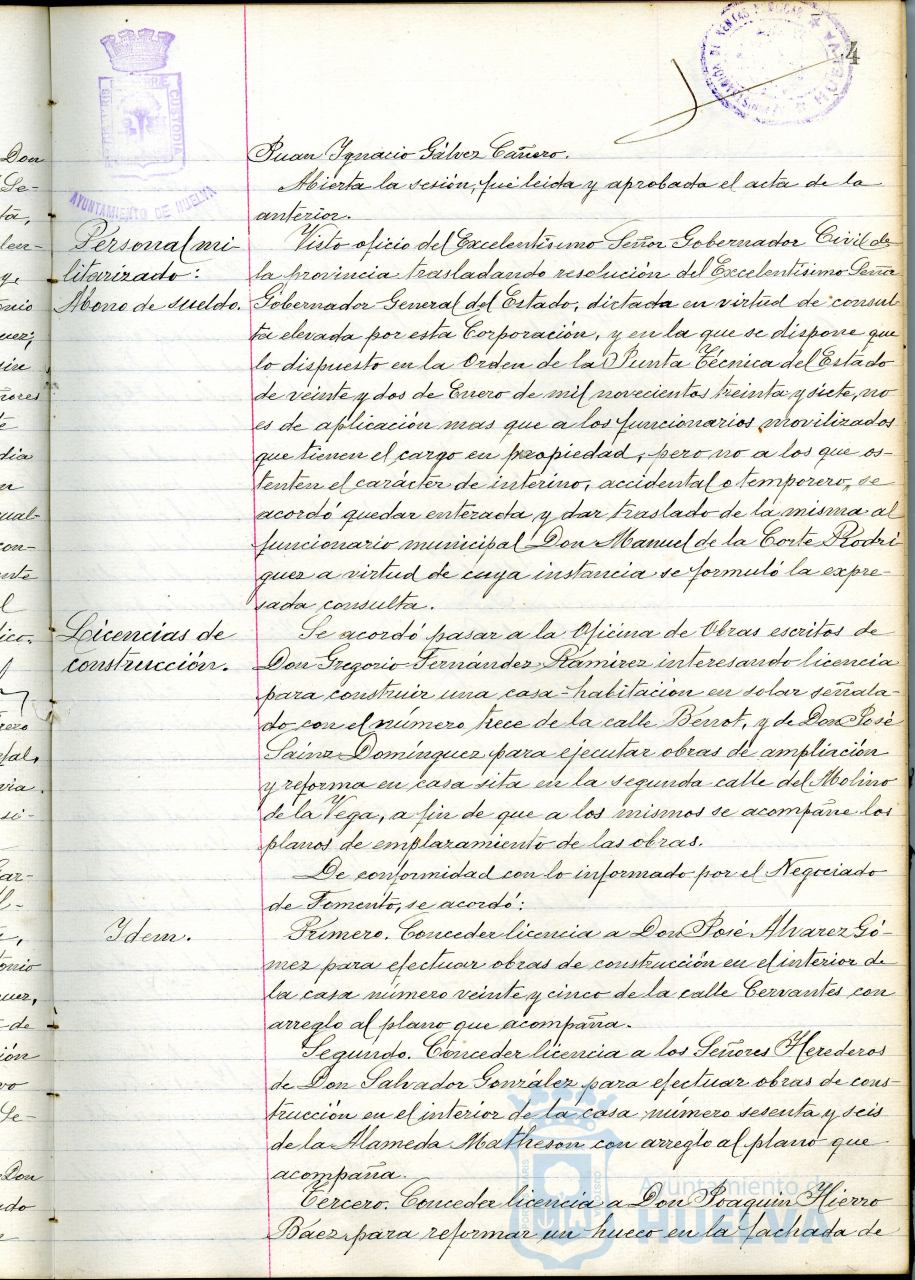 4
AYUNTAMIENTO DE HUELVA
Juan Ignacio Gálvez Cañero.
Abierta la sesión, fué leida y aprobada el acta de la
anterior.
Personal mi-
litarizado:
Abono de sueldo.
Visto oficio del Excelentísimo Señor Gobernador Civil de
la provincia trasladando resolución del Excelentísimo Señor
Gobernador General del Estado, dictada en virtud de consul-
ta elevada por esta Corporación, y en la que se dispone que
lo dispuesto en la Orden de la Junta Técnica del Estado
de veinte y dos de Enero de mil novecientos treinta y siete, no
es de aplicación mas que a los funcionarios movilizados
que tienen el cargo en propiedad, pero no a los que os-
tenten el carácter de interino, accidental o temporero, se
acordó quedar enterada y dar traslado de la misma al
funcionario municipal Don Manuel de la Corte Rodri
guez a virtud de cuya instancia se formuló la expre-
sada consulta.
Licencias de
construcción.
Se acordó pasar a la Oficina de Obras escritos de
Don Gregorio Fernández Ramirez interesando licencia
para construir una casa-habitación en solar señala-
do con el número trece de la calle Berrot, y de Don José
Sáinz Domínguez para ejecutar obras de ampliación
y reforma en casa sita en la segunda calle del Molino
de la Vega, a fin de que a los mismos se acompañe los
planos de emplazamiento de las obras.
De conformidad con lo informado por el Negociado
de Fomento, se acordó:
Idem.
Primero. Conceder licencia a Don José Alvarez Gó-
mez para efectuar obras de construcción en el interior de
la casa número veinte y cinco de la calle Cervantes con
arreglo al plano que acompaña.
Segundo. Conceder licencia a los Señores Herederos
de Don Salvador González para efectuar obras de cons-
trucción en el interior de la casa número sesenta y seis
de la Alameda Matheson con arreglo al plano que
acompaña.
Tercero. Conceder licencia a Don Joaquin Hierro
Báez para reformar un hueco en la fachada de
Ayuntamiento de
HUELVA